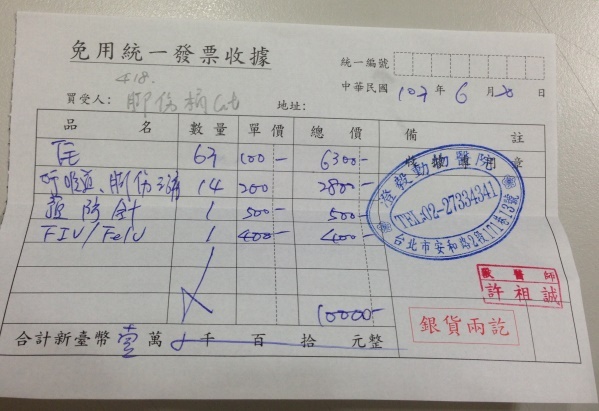 免用統一發票收據
統一編號
418.
中華民國 107 年 6 月 20 日
買受人: 腳傷橘Cat 地址:
品 名 數量 單價 總 價 備 註
住 63 100- 6300-
14 200 2800-
預防針 1 500- 500-
FIV/FeLV 1 400- 400-
10000-
澄毅動物醫院
TEL:02-27334341
台北市安和路2段171巷13號
獸醫師
許祖誠
銀貨兩訖
合計新臺幣壹萬 千 百 拾 元整